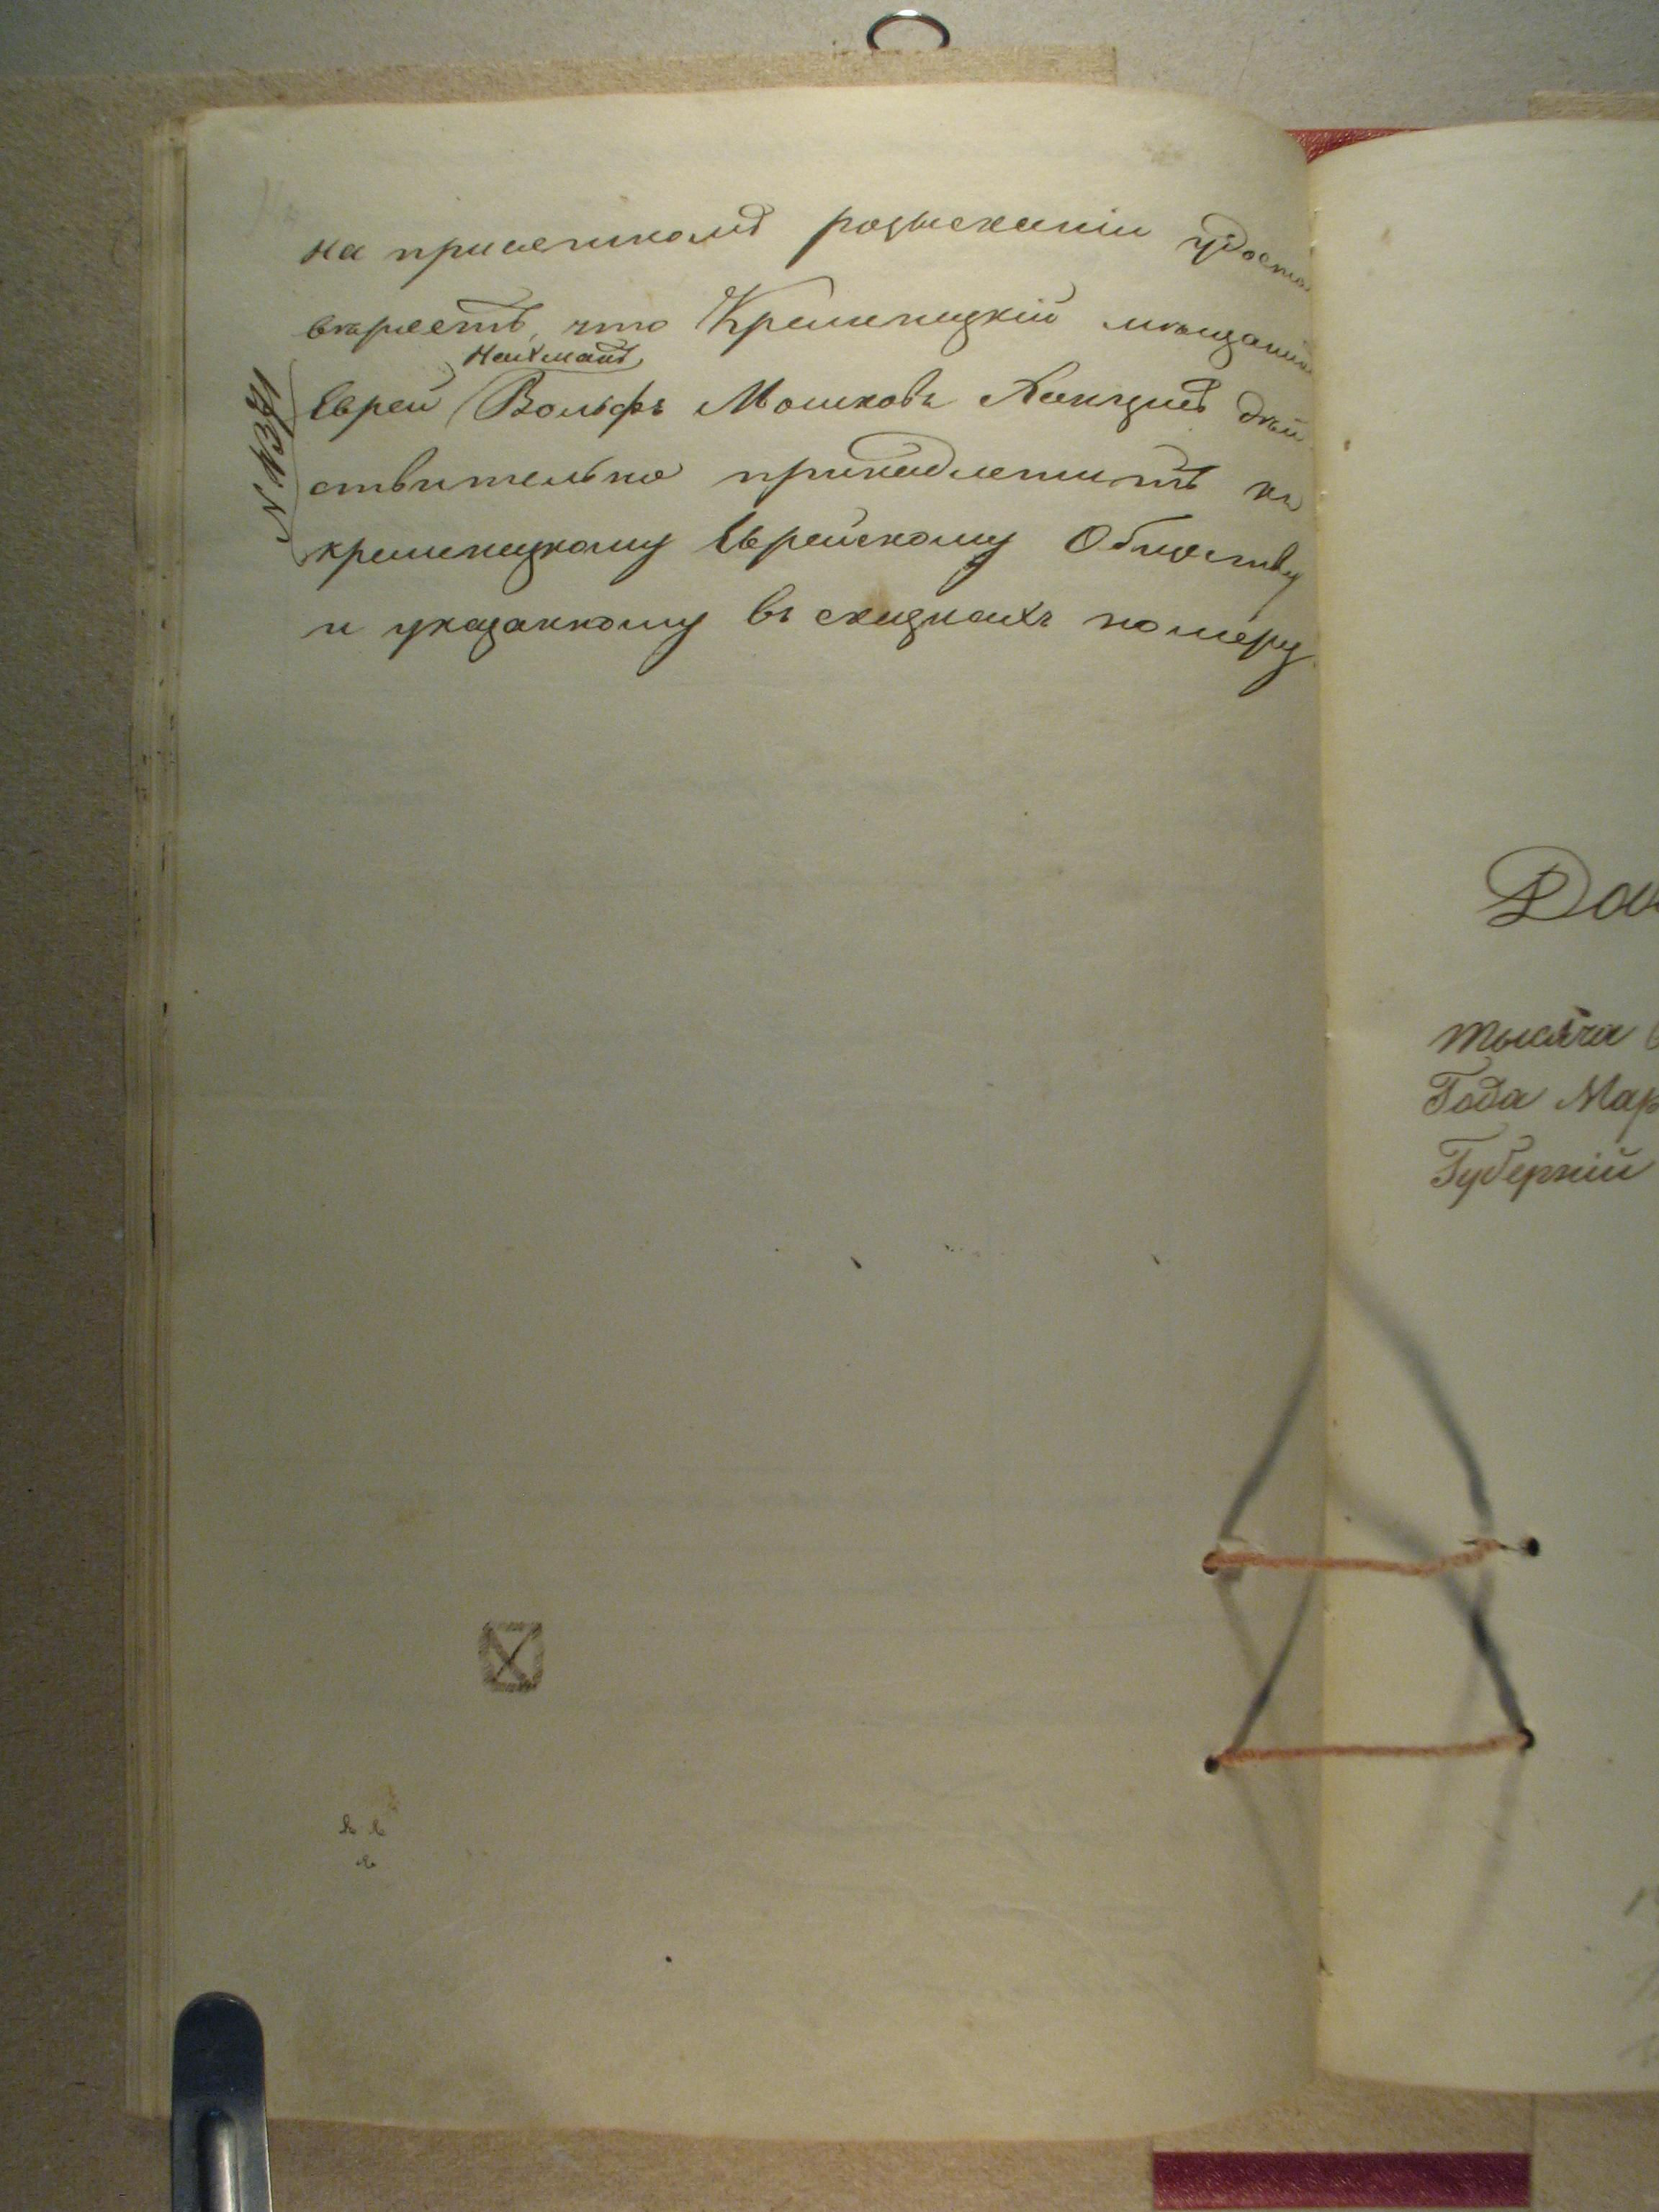 на присемкомъ розыскании удосто
вѣряетъ, что Кременецкій мѣщанинъ
Нахманъ
Еврей Вольфъ Мошковъ дѣй
ствительно принадлежитъ къ
кременецкому Еврейскому Обществу
и указанному въ сказкахъ номеру
тысяча
Года Мар
Губерніи